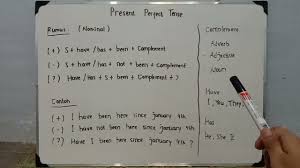 Present Perfect Tense
Rumus (Nominal)
(+) S + have / has + been + Complement
(-) S + have / has + not + been + Complement
(?) Have / has + S + been + Complement + ?
Contoh
(+) I have been here since january 4th
(-) I have not been here since january 4th
(?) Have I been here since january 4th ?
Complement
Adverb
- Adjective
Noun
Have
I, You, They,
Has
He, She